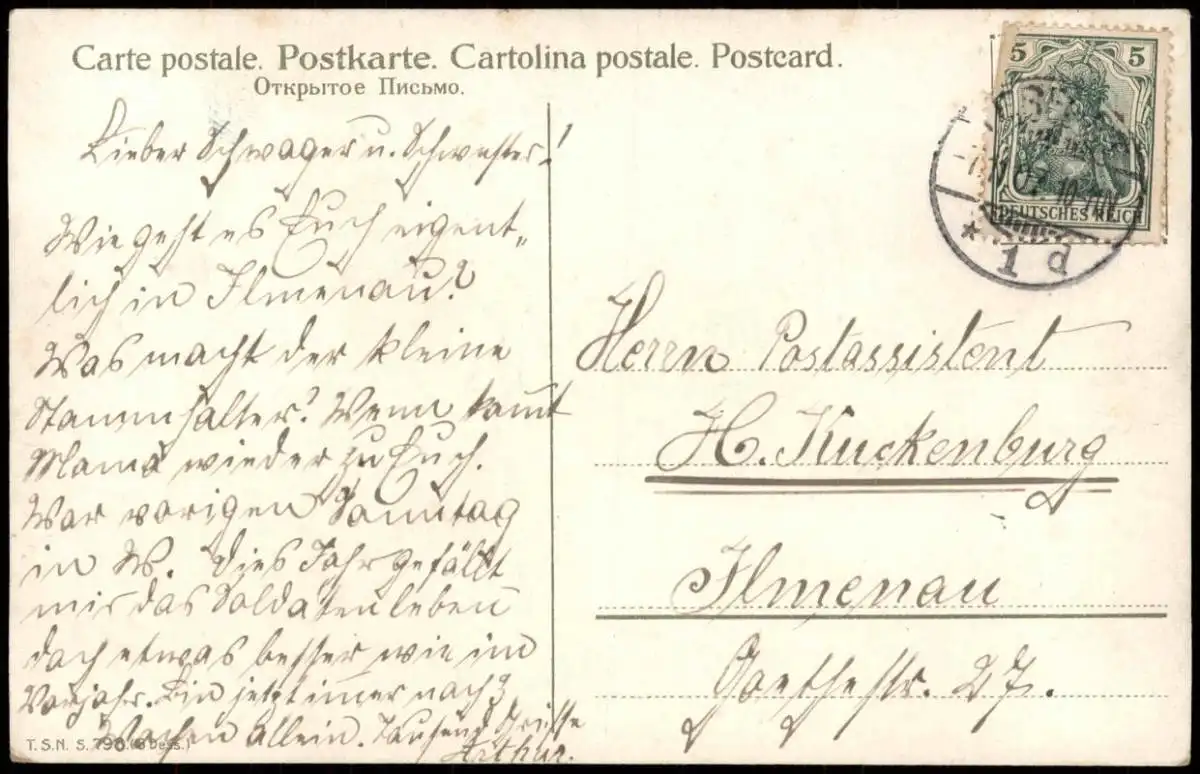 Carte postale. Postkarte. Cartolina postale. Postcard.
Открытое Письмо.
Lieber Schwager u. Schwester!
Wie geht es Euch eigent„
lich in Ilmenau?
Was macht der kleine
Stammhalter? Wenn kommt
Mama wieder zu Euch.
War vorigen Sonntag
in W. Dies Jahr gefällt
mir das Soldatenleben
doch etwas besser wie im
Vorjahr. Bin jetzt immer nach
Wachen allein. Tausend Grüsse
Arthur.
T.S.N. S. 798. (6 Dess.)
5 5
DEUTSCHES REICH
* 1 d
Herrn Postassistent
H. Kuckenburg
Ilmenau
Goethestr. 27.